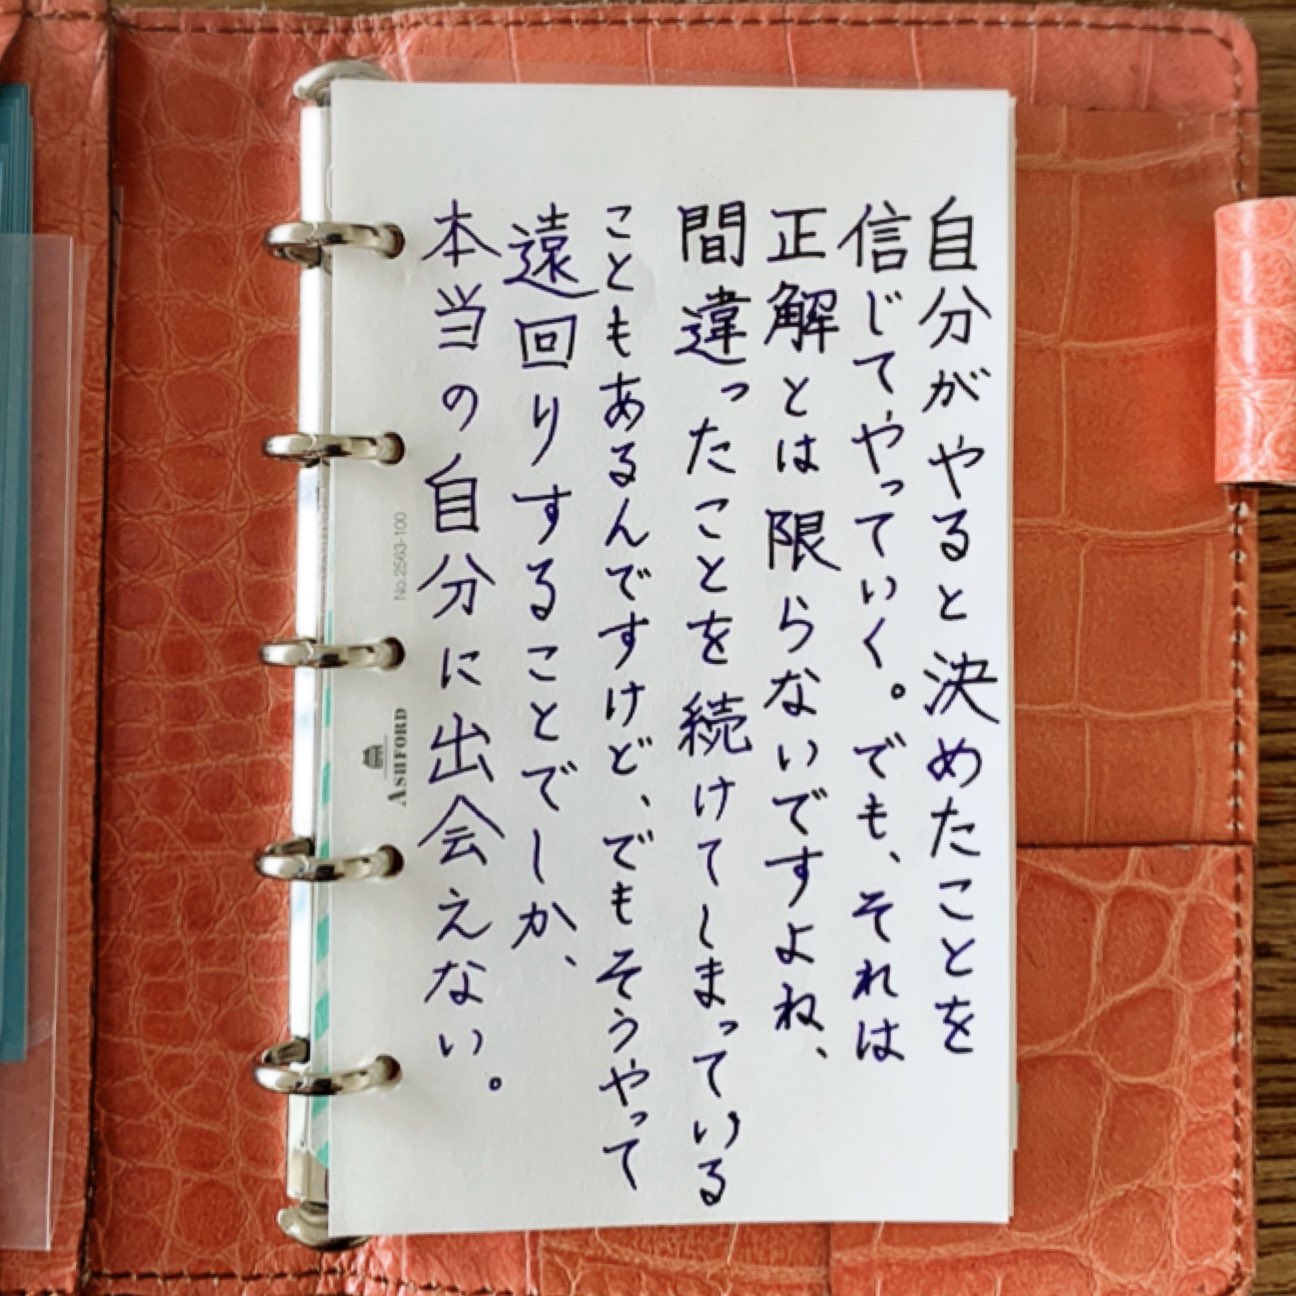 自分がやると決めたことを
信じてやっていく。でも、それは
正解とは限らないですよね、
間違ったことを続けてしまっている
こともあるんですけど、でもそうやって
遠回りすることでしか、
本当の自分に出会えない。
No.2563-100
ASHFORD